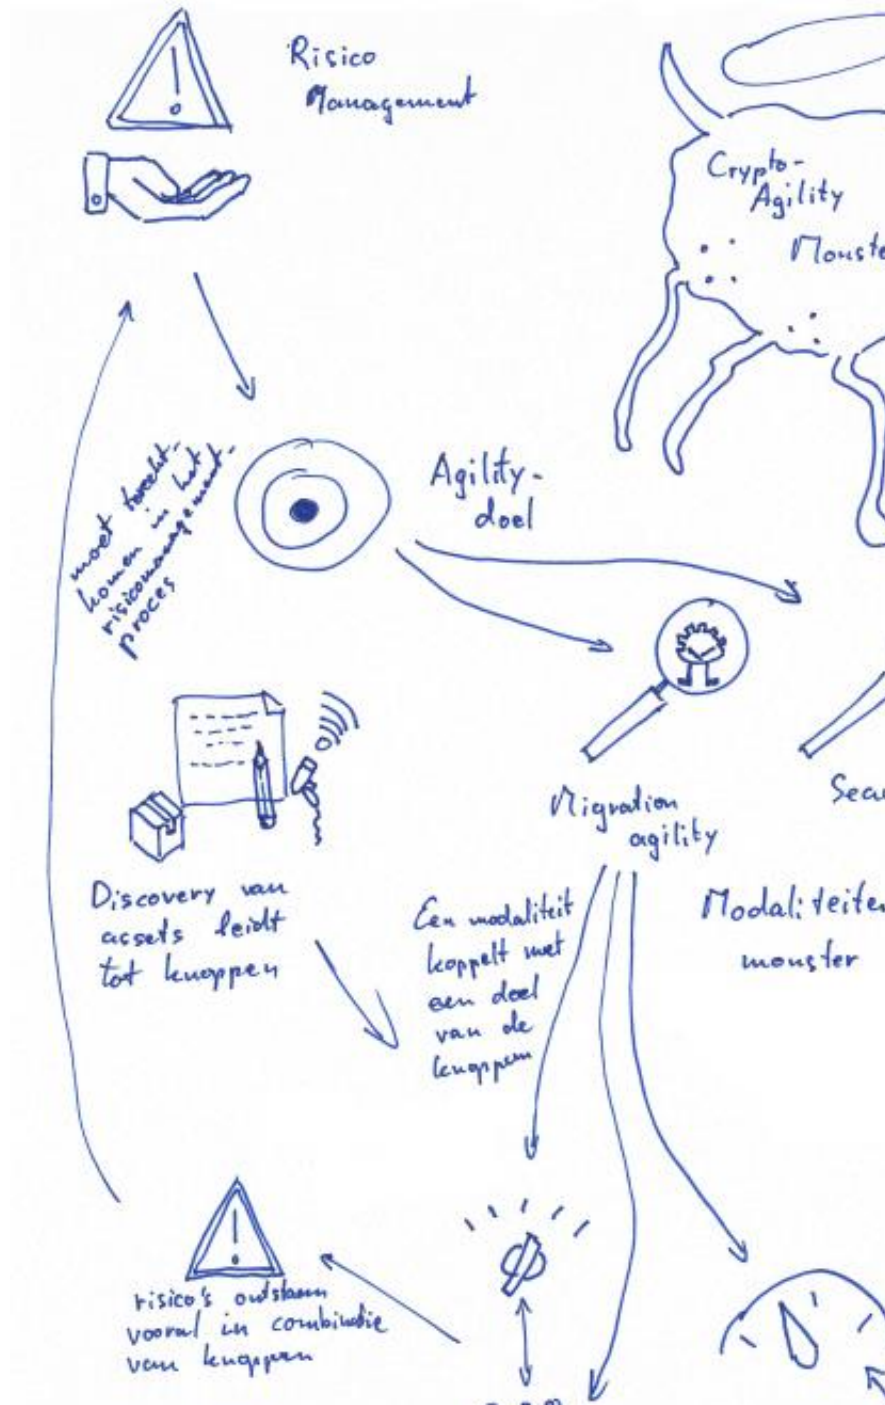 Risico
Management
Crypto-
Agility
Monste
Agility-
doel
moet terecht-
komen in het
risicomanagement-
proces
Migration
agility
Secu
Discovery van
assets leidt
tot knoppen
Een modaliteit
koppelt met
een doel
van de
knoppen
Modaliteiten
monster
risico's ontstaan
vooral in combinatie
van knoppen